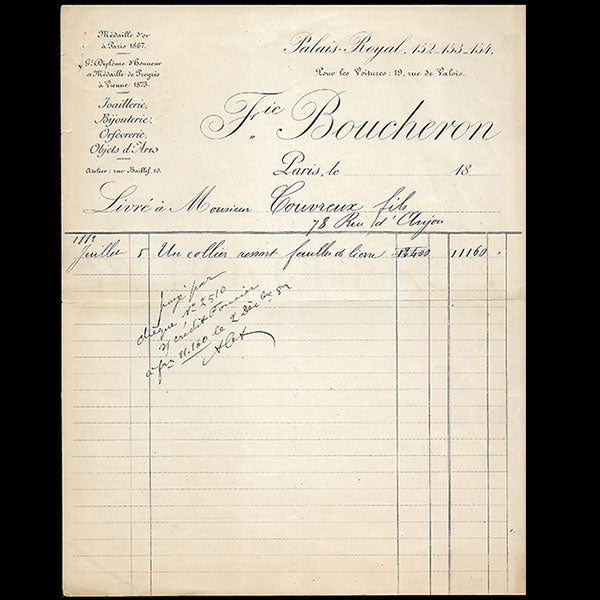 Médaille d'or
à Paris 1867.
Gd Diplôme d'Honneur
et Médaille de Progrès
à Vienne 1873.
Joaillerie.
Bijouterie.
Orfèvrerie.
Objets d'Arts
Atelier: rue Baillif, 10.
Palais-Royal, 152-153-154.
Pour les Voitures: 19, rue de Valois.
Fic Boucheron
Paris, le 18
Livré à Monsieur Couvreux fils
78 Rue d'Anjou
1882
Juillet 5 Un collier ressort feuilles de lierre 12400 11160
payé par
chèque No 2510
s/ crédit Foncier
à frs 11.160 le 2 Déc bre 82